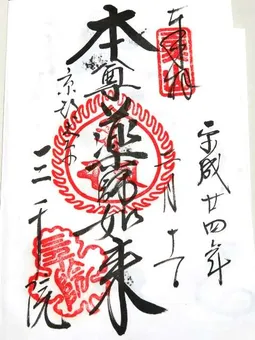 奉拝
平成廿四年
二月十六日
本尊薬師如来
京都大原
三千院